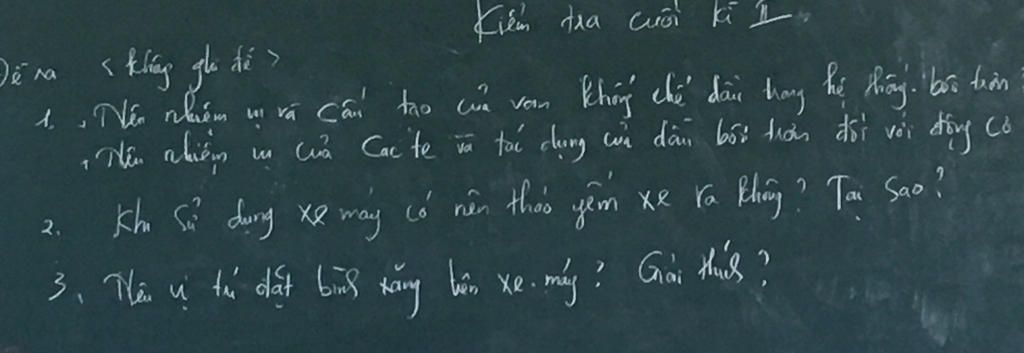 Kiểm tra cuối kì II
Đề ra < không ghi đề >
1. , Nêu nhiệm vụ và cấu tạo của van khống chế dầu trong hệ thống bôi trơn
, Nêu nhiệm vụ của Cacte và tác dụng của dầu bôi trơn đối với động cơ
2. Khi sử dụng xe máy có nên tháo yếm xe ra không? Tại sao?
3. Nêu vị trí đặt bình xăng trên xe máy? Giải thích?